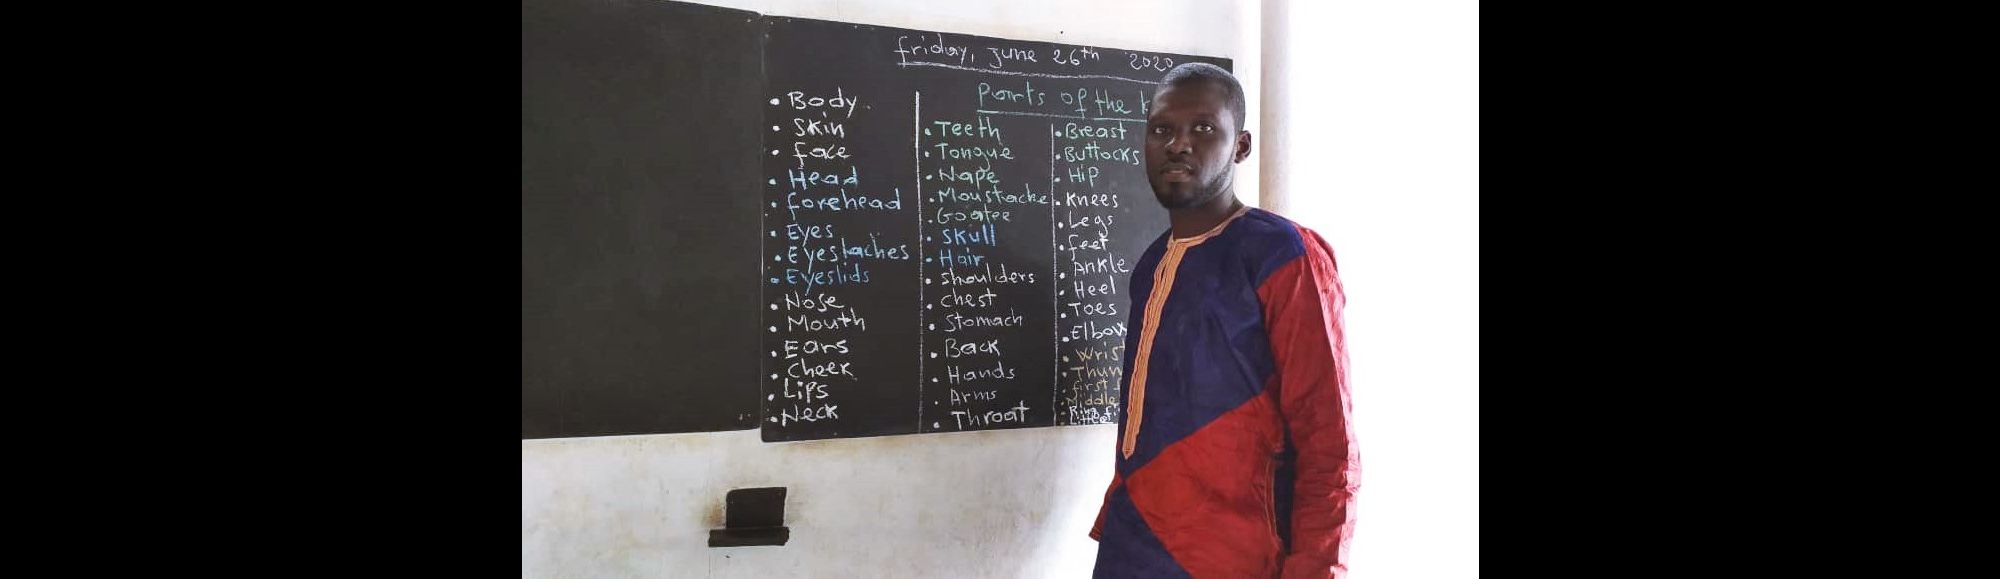 friday, june 26th 2020
Parts of the
• Body.
• Skin
• face
• Head
• forehead
• Eyes
• Eyeslaches
• Eyeslids
• Nose
• Mouth
• Ears
• cheek
• Lips
• Neck
• Teeth
• Tongue
• Nape
• Moustache
• Goatee
• Skull
• Hair
• shoulders
• chest
• Stomach
• Back
• Hands
• Arms
• Throat
• Breast
• Buttocks
• Hip
• Knees
• Legs
• feet
• Ankle
• Heel
• Toes
• Elbow
• Wrist
• first
• Middle
• Ring